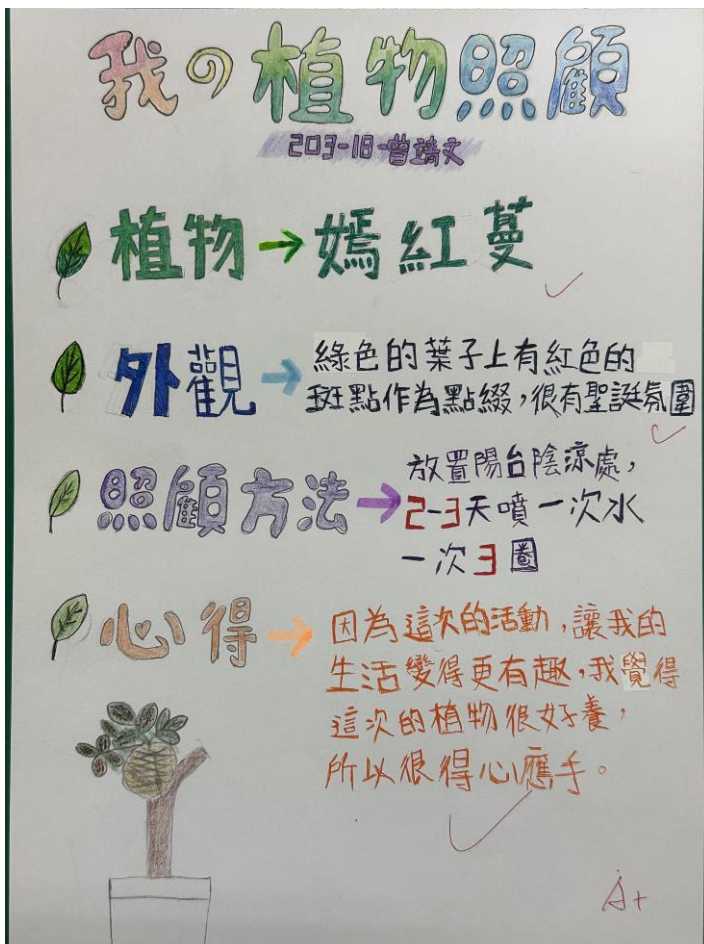 我の植物照顧
203-18-曾靖文
植物→嫣紅蔓
外觀→綠色的葉子上有紅色的
斑點作為點綴,很有聖誕氛圍
照顧方法→放置陽台陰涼處,
2-3天噴一次水
一次3圈
心得→因為這次的活動,讓我的
生活變得更有趣,我覺得
這次的植物很好養,
所以很得心應手。
A+